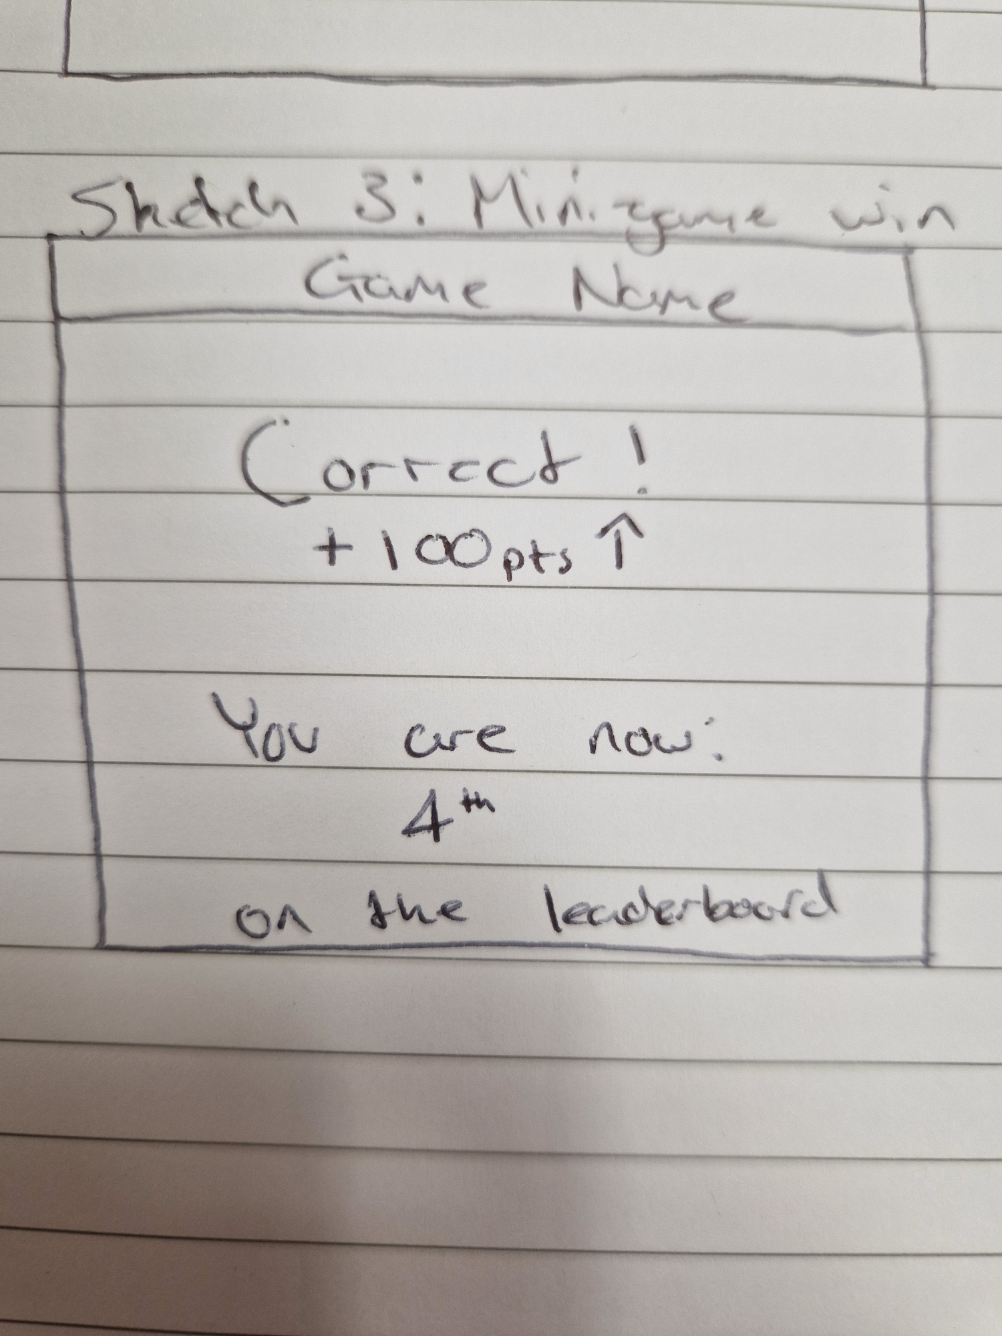 Sketch 3: Minigame win
Game Name
Correct!
+100pts ↑
You are now:
4th
on the leaderboard